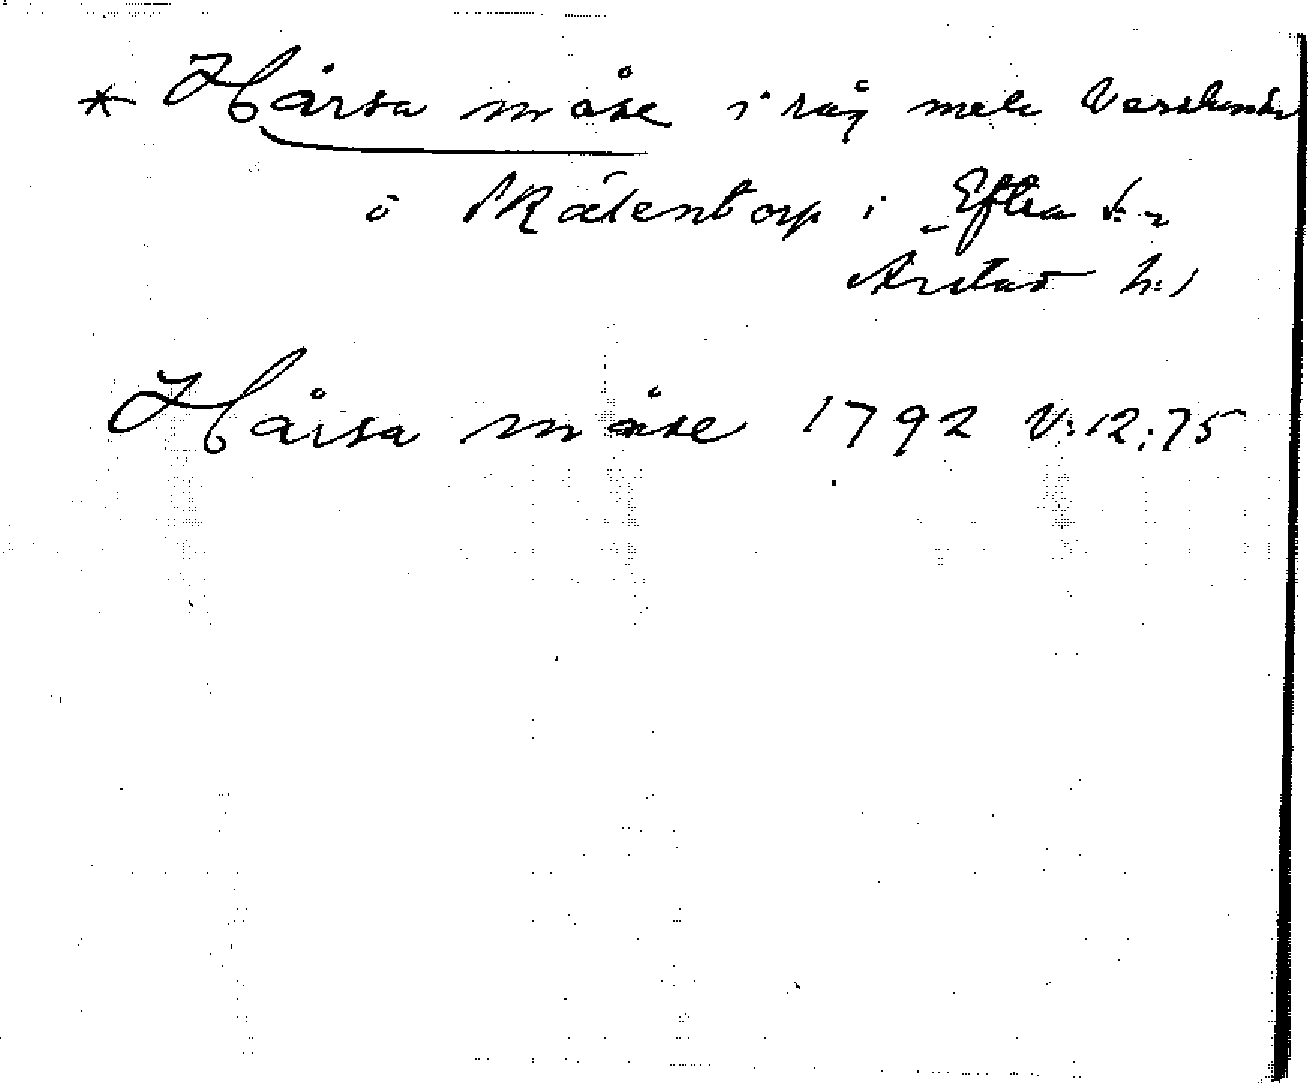 * Hårsa måse i råg mele Vaselunda
o Skällentorp i Eftra s:n
Årstad h:d
Hårsa måse 1792 V:12:75